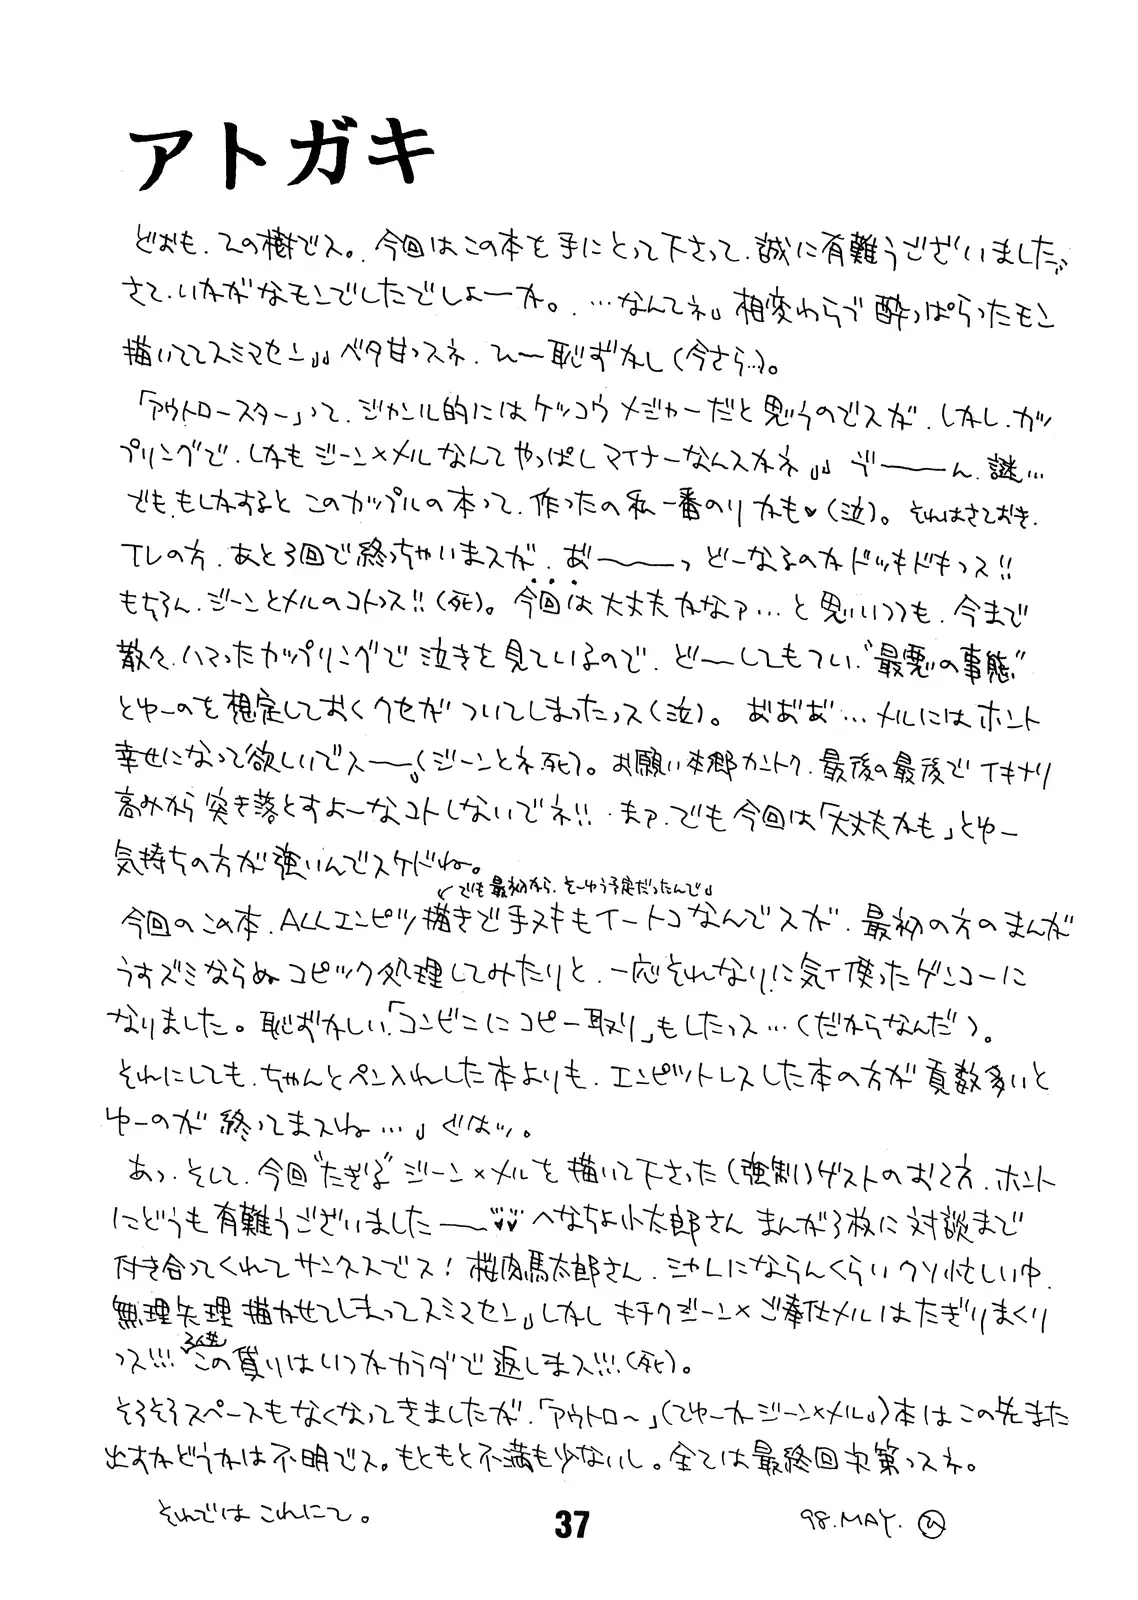 アトガキ
どおも、ひの樹でス。今回はこの本を手にとって下さって、誠に有難うございました。
さて、いかがなモンでしたでしょーか。…なんてネ」相変わらで酔っぱらったモン
描いててスミマセン」」ベタ甘っスネ、ひー恥ずかし(今さら…)。
「アウトロースター」って、ジャンル的にはケッコウメジャーだと思うのでスが、しかし、カッ
プリングで、しかもジーン×メルなんてやっぱしマイナーなんスかネ」」ゔーーん、謎…
でも、もしかするとこのカップルの本って、作ったの私一番のりかも♥(泣)。それはさておき、
TVの方、あと3回で終っちゃいまスが、あ゛ーーっどーなるのかドッキドキっス!!
もちろん、ジーンとメルのコトっス!!(死)。今回は大丈夫かなァ…と思いつつも、今まで
散々、ハマったカップリングで泣きを見ているので、どーしてもつい、“最悪の事態”
とゆーのを想定しておくクセがついてしまったっス(泣)。お゛お゛お゛…メルにはホント
幸せになって欲しいでスー」(ジーンとネ、死)。お願い本郷カントク、最後の最後でイキナリ
高みから突き落とすよーなコトしないでネ!!まァ、でも今回は「大丈夫かも」とゆー
気持ちの方が強いんでスケドね。
↙でも最初から、そーゆう予定だったんで」
今回のこの本、ALLエンピツ描きで手ヌキもイートコなんでスが、最初の方のまんが
うすズミならぬコピック処理してみたりと、一応それなりに気ィ使ったゲンコーに
なりました。恥ずかしい、「コンビニにコピー取り」もしたっス…(だからなんだ)。
それにしても、ちゃんとペン入れした本よりも、エンピツトレスした本の方が頁数多いと
ゆーのが終ってまスね…」ぐはッ。
あっ、そして、今回“たぎる”ジーン×メルを描いて下さった(強制)ゲストのおて方、ホント
にどうも有難うございましたー♥♥へなちょ小太郎さんまんが3枚に対談まで
付き合ってくれてサンクスでス!桜肉馬太郎さん、ミカしにならんくらいクソ忙しい中、
無理矢理描かせてしまってスミマセン」しかしキチクジーン×ご奉仕メルはたぎりまくり
っス!!!この貸りはいつかカラダで返しまス!!!(死)。
そろそろスペースもなくなってきましたが、「アウトロ〜」(てゆーかジーン×メル」)本はこの先また
出すかどうかは不明でス。もともと不満も少ないし。全ては最終回次第っスネ。
それではこれにて。
98.MAY. ひ
37